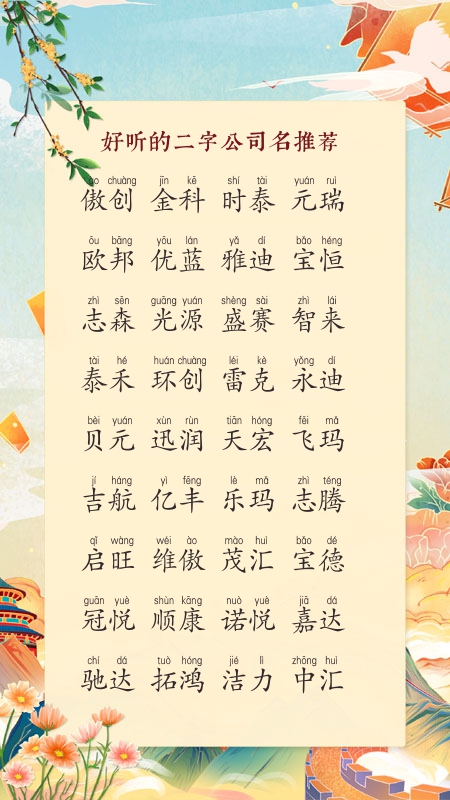 好听的二字公司名推荐
ào chuàng jīn kē shí tài yuán ruì
傲创 金科 时泰 元瑞
ōu bāng yōu lán yǎ dí bǎo héng
欧邦 优蓝 雅迪 宝恒
zhì sēn guāng yuán shèng sài zhì lái
志森 光源 盛赛 智来
tài hé huán chuàng léi kè yǒng dí
泰禾 环创 雷克 永迪
bèi yuán xùn rùn tiān hóng fēi mǎ
贝元 迅润 天宏 飞玛
jí háng yì fēng lè mǎ zhì téng
吉航 亿丰 乐玛 志腾
qǐ wàng wéi ào mào huì bǎo dé
启旺 维傲 茂汇 宝德
guān yuè shùn kāng nuò yuè jiā dá
冠悦 顺康 诺悦 嘉达
chí dá tuò hóng jié lì zhōng huì
驰达 拓鸿 洁力 中汇